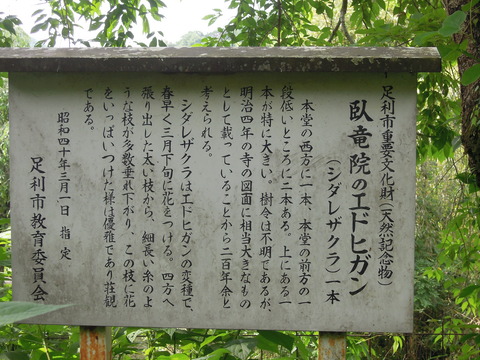 足利市重要文化財(天然記念物)
臥竜院のエドヒガン
(シダレザクラ)一本
本堂の西方に一本、本堂の前方の一
段低いところに二本ある。上にある一
本が特に大きい。樹令は不明であるが、
明治四年の寺の図面に相当大きなもの
として載っていることから二百年余と
考えられる。
シダレザクラはエドヒガンの変種で、
春早く三月下旬に花をつける。四方へ
張り出した太い枝から、細長い糸のよ
うな枝が多数垂れ下がり、この枝に花
をいっぱいつけた様は優雅であり荘観
である。
昭和四十年三月一日 指定
足利市教育委員会